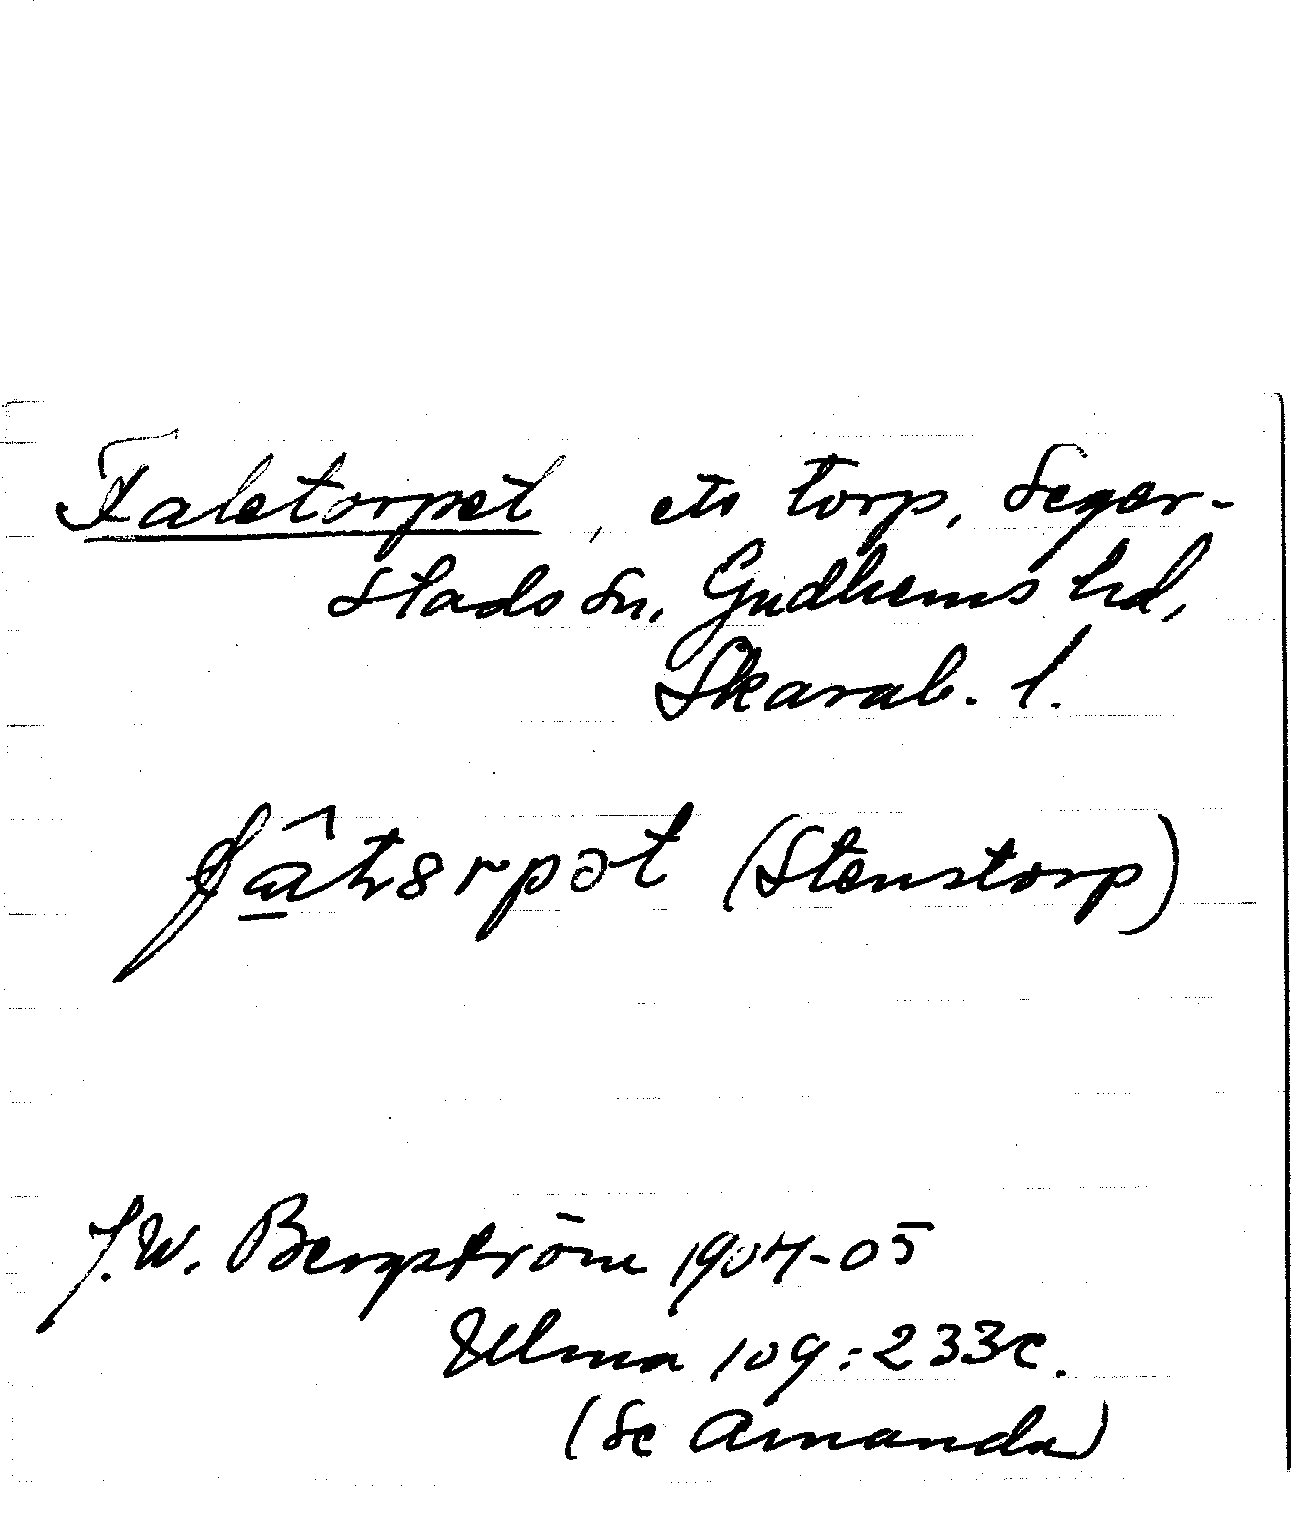 Faletorpet, ett torp, Seger-
stads sn, Gudhems hd,
Skarab. l.
(Stenstorp)
J.W. Bergström 1904-05
Ulma 109:233c.
(Se Amanda)